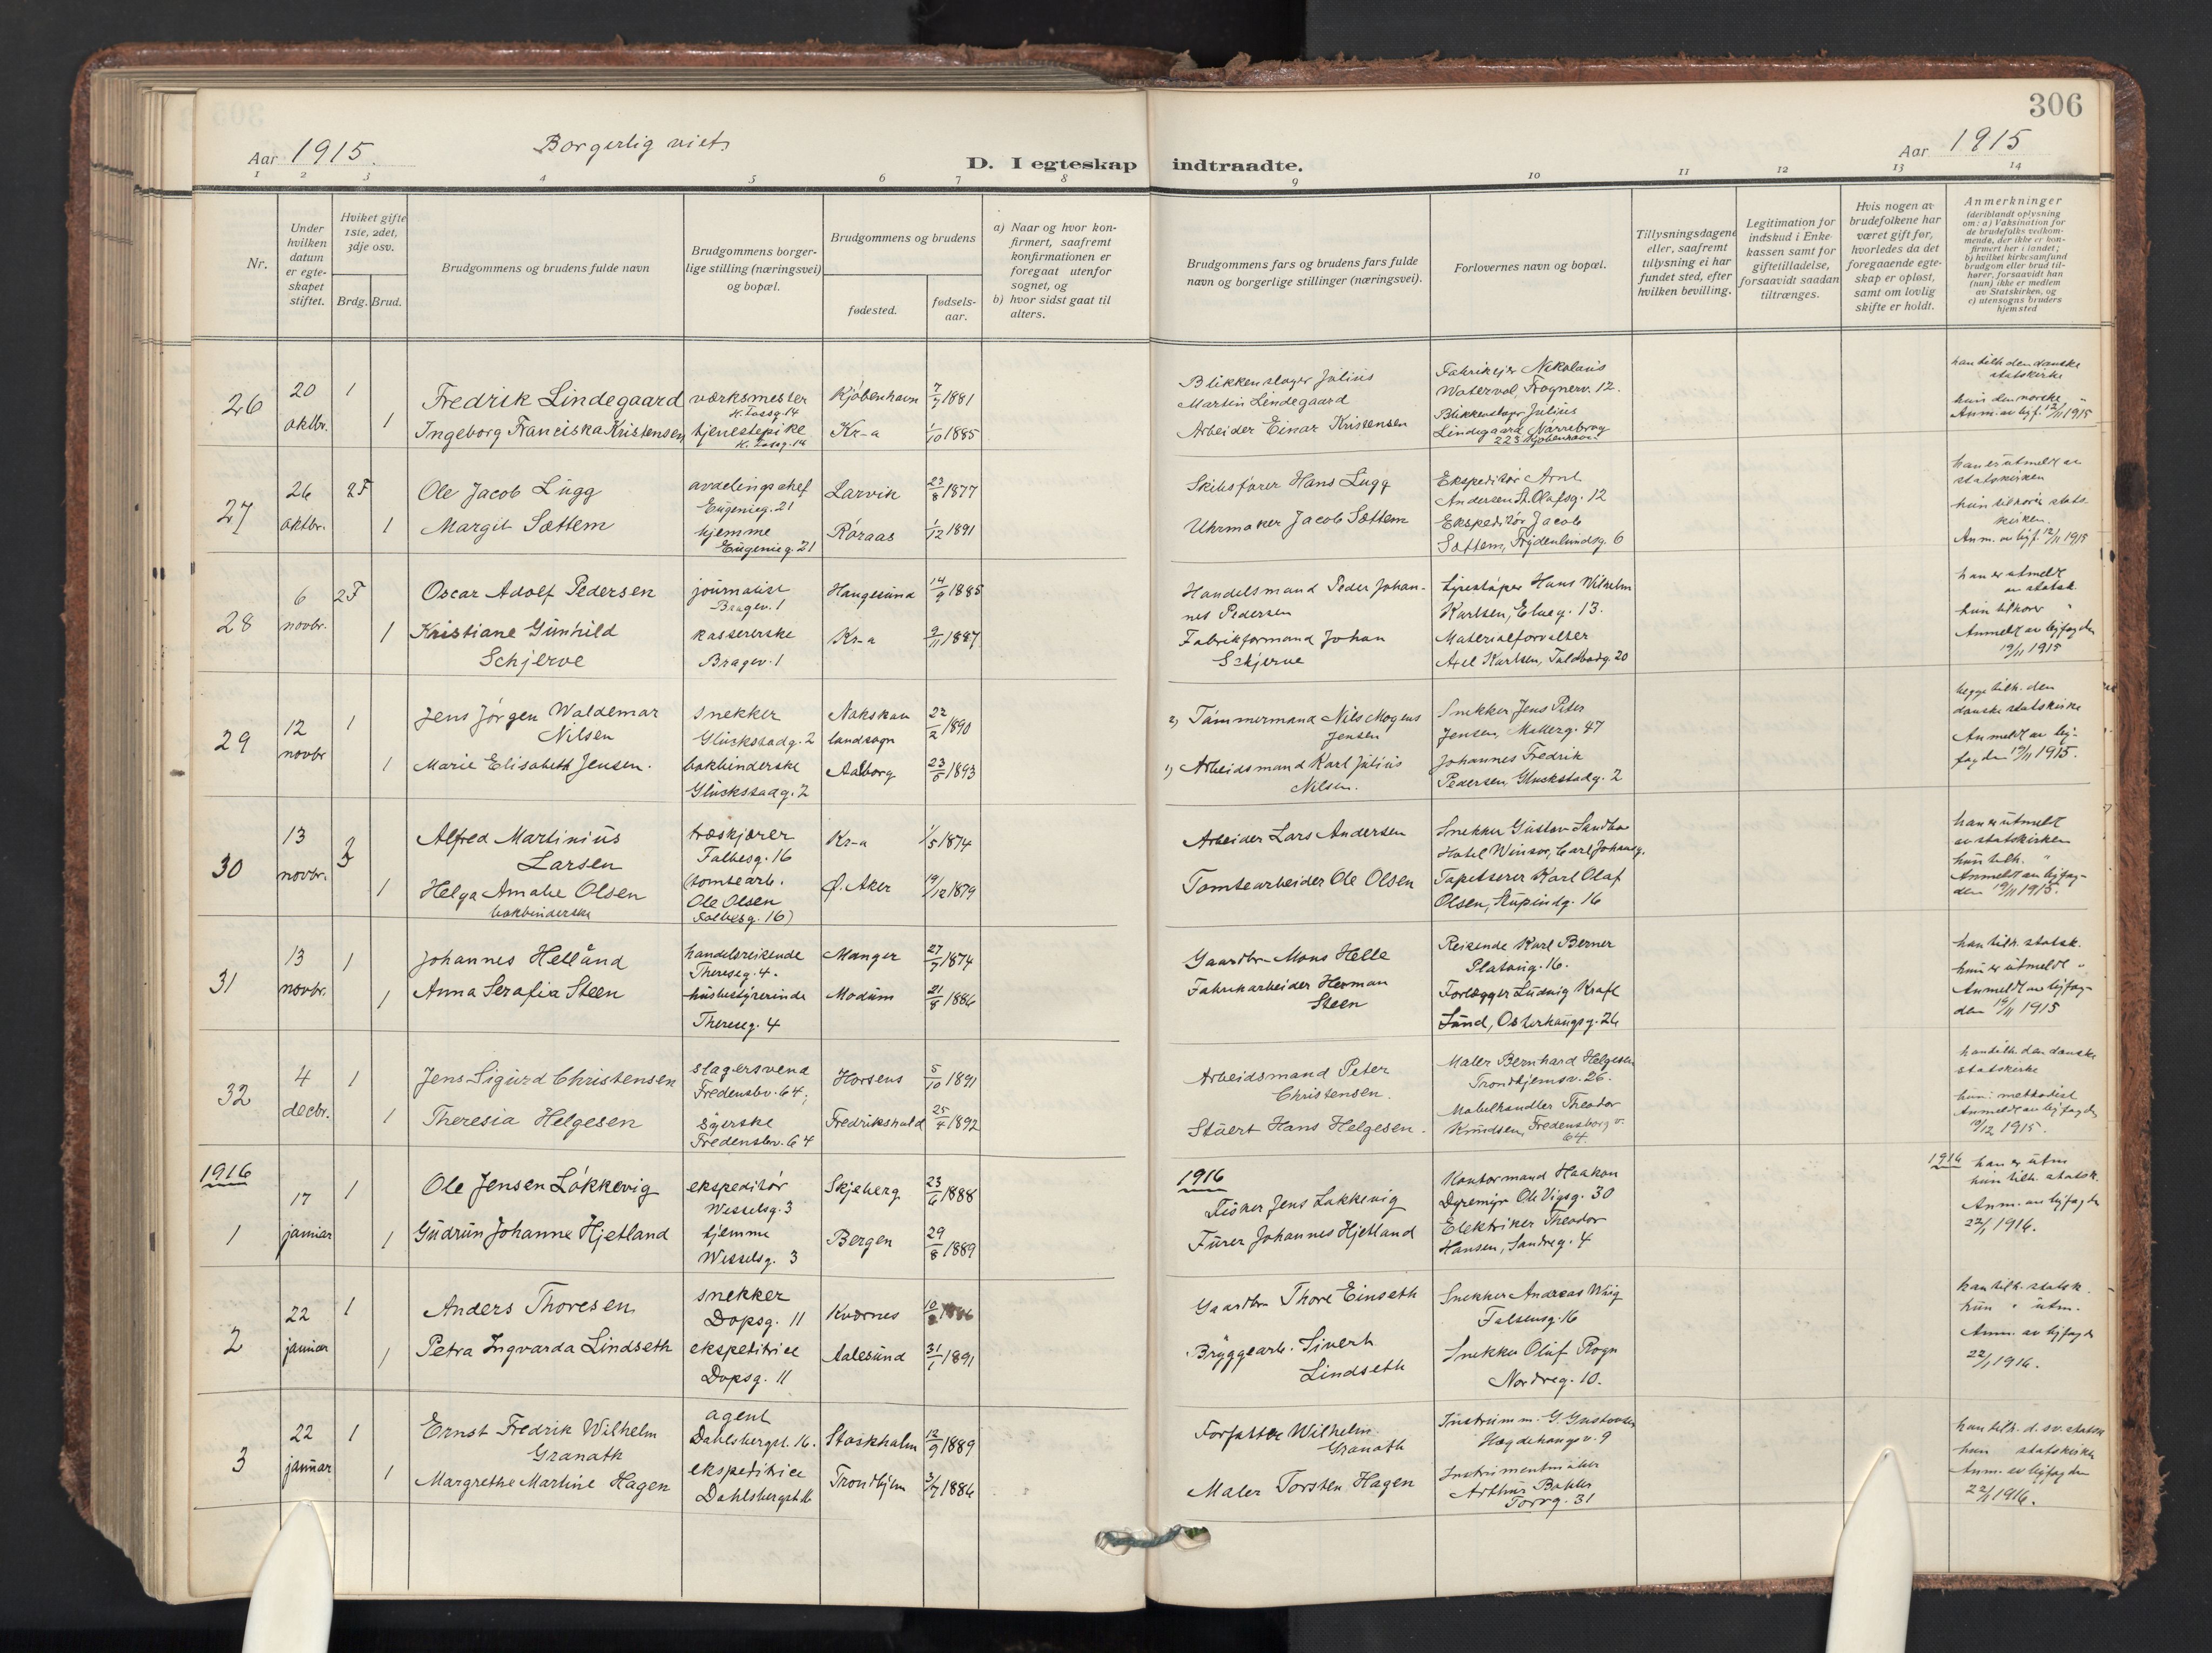 306
Aar 1915.
Borgerlig viet.
Aar 1915
D. I egteskap indtraadte.
1 2 3 4 5 6 7 8 9 10 11 12 13 14
Nr.
Under hvilken datum er egteskapet stiftet.
Hviket gifte 1ste, 2det, 3dje osv.
Brdg. Brud.
Brudgommens og brudens fulde navn
Brudgommens borgerlige stilling (næringsvei) og bopæl.
Brudgommens og brudens
fødested.
fødselsaar.
a) Naar og hvor konfirmert, saafremt konfirmationen er foregaat utenfor sognet, og
b) hvor sidst gaat til alters.
Brudgommens fars og brudens fars fulde navn og borgerlige stillinger (næringsvei).
Forlovernes navn og bopæl.
Tillysningsdagene eller, saafremt tillysning ei har fundet sted, efter hvilken bevilling.
Legitimation for indskud i Enkekassen samt for giftetilladelse, forsaavidt saadan tiltrænges.
Hvis nogen av brudefolkene har været gift før, hvorledes da det foregaaende egteskap er opløst, samt om lovlig skifte er holdt.
Anmerkninger
(deriblandt oplysning om: a) Vaksination for de brudefolks vedkommende, der ikke er konfirmert her i landet; b) hvilket kirkesamfund brudgom eller brud tilhører, forsaavidt han (hun) ikke er medlem av Statskirken, og c) utensogns bruders hjemsted
26
20 oktbr.
1
1
Fredrik Lindegaard
værksmester
Kjøbenhavn
7/7 1881
Ingeborg Franciska Kristensen
tjenestepike
Kr-a
1/10 1885
Blikkenslager Julius
Martin Lindegaard
Arbeider Einar Kristensen
Fabrikejer Nikolaus
Waterval, Frognerv. 12.
Blikkenslager Julius
Lindegaard Nørrebrog
223 Kjøbenhavn
han tilh. den danske
statskirke
hun den norske "
Anm. av bjf. 12/11 1915
27
26 oktbr.
2F
1
Ole Jacob Lugg
avdelingschef
Eugenieg. 21
Larvik
23/8 1877
Margit Sættem
hjemme
Eugenieg. 21
Røraas
1/12 1891
Skibsfører Hans Lugg
Uhrmaker Jacob Sættem
Ekspeditør Arnt
Andersen St. Olafsg. 12
Ekspeditør Jacob
Sættem, Frydenlundsg. 6
han er utmeldt av
statskirken
hun tilhører statskirken.
Anm. av bjf. 12/11 1915
28
6 novbr.
2F
1
Oscar Adolf Pedersen
journalist
Bragev. 1
Haugesund
14/9 1885
Kristiane Gunhild
Schjerve
kassererske
Bragev. 1
Kr-a
9/11 1887
Handelsmand Peder Johannes Pedersen
Fabrikformand Johan
Schjerve
Hans Wilhelm
Karlsen, 13.
Materialforvalter
Axel Karlsen, Toldbodg. 20
han er utmeldt
av statsk.
hun tilhører "
Anmeldt av bjfogden
19/11 1915
29
12 novbr
1
1
Jens Jørgen Waldemar
Nilsen
snekker
Glückstadg. 2
Nakskau
landsogn
22/2 1890
Marie Elisabeth Jensen.
bokbinderske
Glückstadg. 2
Aalborg
23/5 1893
2) Tømmermand Nils Mogens
Jensen
1) Arbeidsmand Karl Julius
Nilsen.
Snekker Jens Peter
Jensen, Møllerg. 47
Johannes Fredrik
Pedersen, Glückstadg. 2
begge tilh. den
danske statskirke
Anmeldt av bjfogden 19/11 1915.
30
13 novbr.
1
Alfred Martinius
Larsen
træskjærer
Falbesg. 16
Kr-a
1/5 1874
Helga Amalie Olsen
bokbinderske
(tomtearb.
Ole Olsen
Falbesg. 16)
Ø. Aker
19/12 1879
Arbeider Lars Andersen
Tomtearbeider Ole Olsen
Snekker Gustav Sandbo
Hotel Winsor, Carl Johansg.
Tapetserer Karl Olaf
Olsen, Stupindg. 16
han er utmeldt
av statskirken
hun tilh. "
Anmeldt av bjfogden 19/11 1915.
31
13 novbr.
1
1
Johannes Helland
handelsreisende
Thereseg. 4.
Manger
27/7 1874
Anna Serafia Steen
husbestyrerinde
Thereseg. 4
Modum
21/8 1886
Gaardbr. Mons Helle
Fabrikarbeider Herman
Steen
Reisende Karl Berner
Platoug. 16.
Forlægger Ludvig Kraft
Lund, Osterhaugsg. 26
han tilh. statsk.
hun er utmeldt "
Anmeldt av bjfogden 19/11 1915
32
4 decbr.
1
1
Jens Sigurd Christensen
slagersvend
Fredensbv. 64;
Horsens
5/10 1891
Theresia Helgesen
syerske
Fredensbv. 64
Fredrikshald
25/4 1892
Arbeidsmand Peter
Christensen.
Stuert Hans Helgesen.
Maler Bernhard Helgesen
Trondhjemsv. 26.
Møbelhandler Theodor
Knudsen, Fredensborgv.
64.
han tilh. den danske
statskirke
hun: methodist
Anmeldt av bjfogden
/12 1915.
1916
1
17 januar
1
1
Ole Jensen Løkkevig
ekspeditør
Wesselsg. 3
Skjeberg
23/6 1888
Gudrun Johanne Hjetland
hjemme
Wesselsg. 3
Bergen
29/8 1889
1916
Fisker Jens Løkkevig
Fürer Johannes Hjetland
Kontormand Haakon
Dyremyr Ole Vigsg. 30
Elektriker Theodor
Hansen, Søndreg. 4
1916 han er utm
hun tilh. statsk.
Anm. av bjfogden
22/1 1916.
2
22 januar
1
1
Anders Thoresen
snekker
Dopsg. 11
Kvernes
Petra Ingvarda Lindseth
ekspeditrice
Dopsg. 11
Aalesund
31/1 1891
Gaardbr. Thore Einseth
Bryggearb. Sivert
Lindseth
Snekker Andreas Wiig
Falsensg. 16
Snekker Oluf Rogn
Nordreg. 10.
han tilh. statsk.
hun " utm.
Anm. av bjfogden
22/1 1916.
3
22 januar
1
1
Ernst Fredrik Wilhelm
Granath
agent
Dahlsbergst. 16.
Stockholm
12/9 1889
Margrethe Martine Hagen
ekspeditrice
Dahlsbergst. 16
Trondhjem
3/7 1886
Forfatter Wilhelm
Granath
Maler Torsten Hagen
Instrumm. G. Gustavsen
Hægdehaugsv. 9
Instrumentmaker
Arthur Bakke
Torvg. 31
han tilh. d. sv. statsk
hun statskirken
Anm. av bjfogden
22/1 1916.